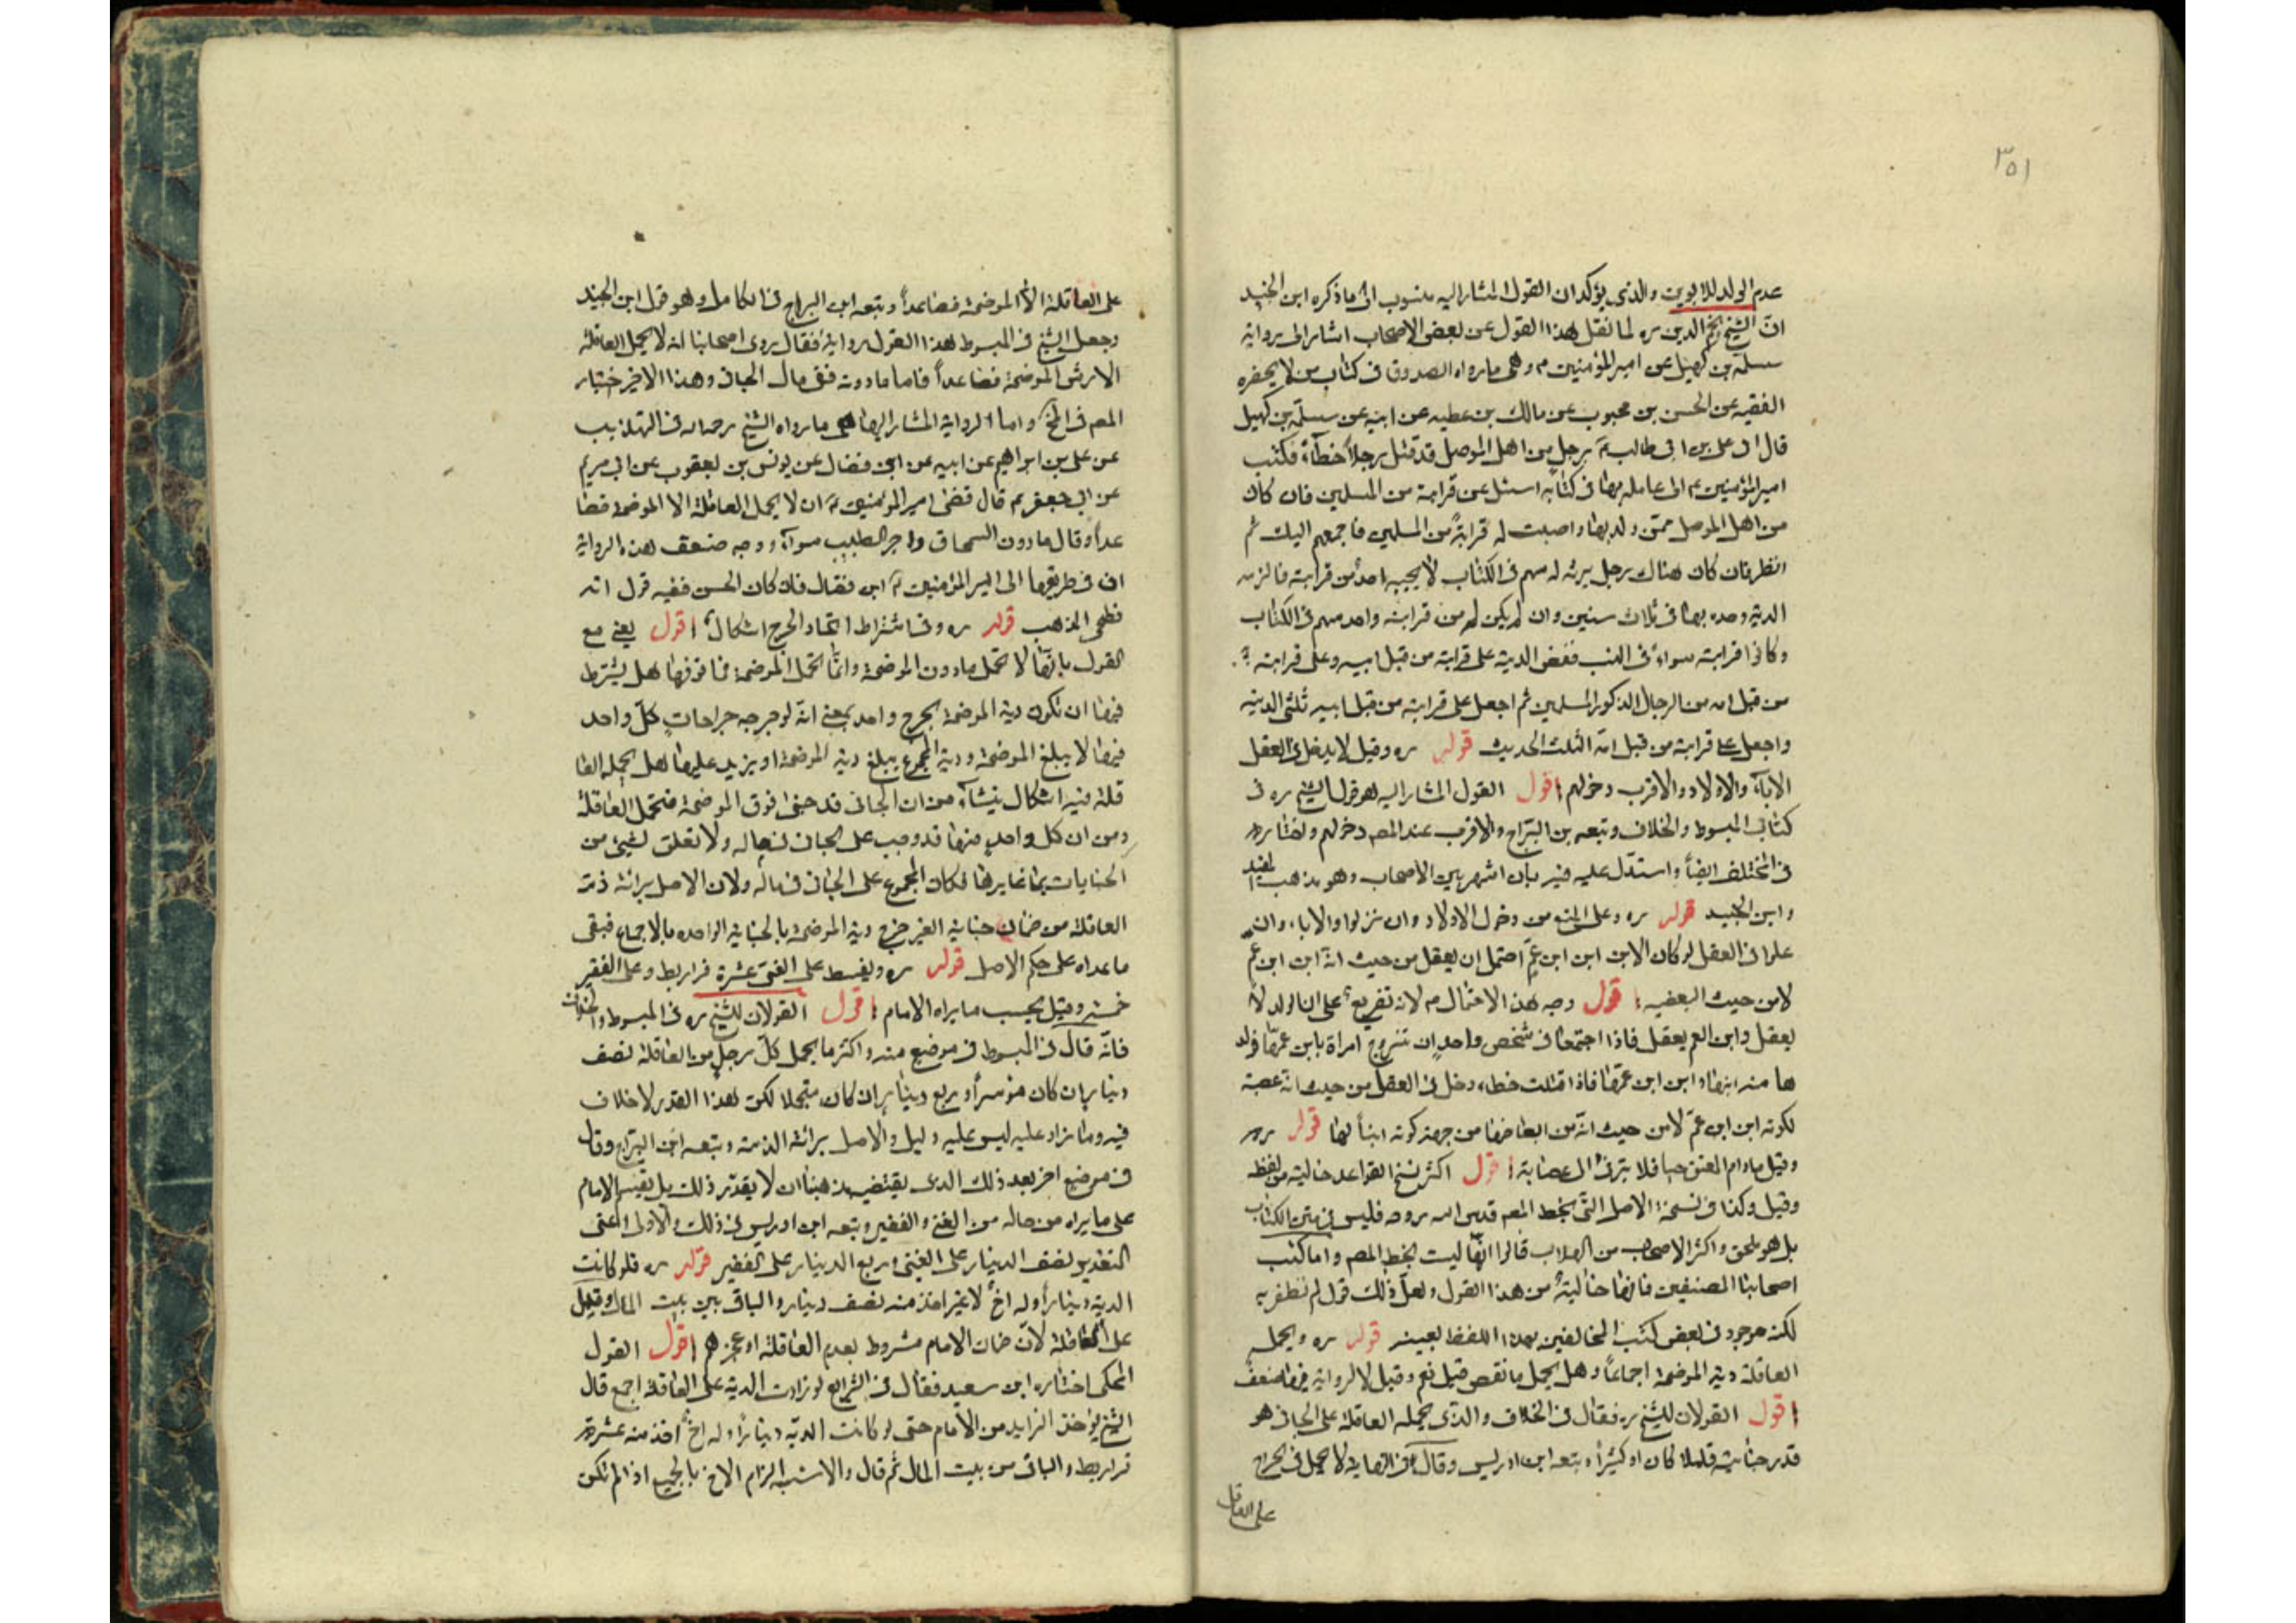 ٣٥١
عدم الولد للابوين والذي يؤكد ان القول المشار اليه منسوب الى ما ذكره ابن الجنيد
انّ الشيخ نجم الدين ره لما نقل هذا القول عن بعض الاصحاب اشار الى رواية
سلمة بن كهيل عن امير المؤمنين م وهى ما رواه الصدوق فى كتاب من لا يحضره
الفقيه عن الحسن بن محبوب عن مالك بن عطيه عن ابيه عن سلمة بن كهيل
قال اتى على بن ابى طالب م برجل من اهل الموصل قد قتل رجلاً خطأة فكتب
امير المؤمنين م الى عامله بها فى كتابه اسئل عن قرابته من المسلمين فان كان
من اهل الموصل ممّن ولد بها واصبت له قرابةً من المسلمين فاجمعهم اليك ثم
انظر فان كان هناك رجل يرثه له سهم فى الكتاب لا يحجبه احد من قرابته فالزمه
الدية وحده بها فى ثلاث سنين وان لم يكن له من قرابته واحد سهم فى الكتاب
وكانوا قرابته سواء فى النسب ففض الدية على قرابته من قبل ابيه وعلى قرابته
من قبل امه من الرجال الذكور المسلمين ثم اجعل على قرابته من قبل ابيه ثلثى الدية
واجعل على قرابته من قبل امّه الثلث الحديث قوله ره وقيل لا يدخل فى العقل
الآباء والاولاد والاقرب دخولهم اقول القول المشار اليه هو قول الشيخ ره فى
كتابى المبسوط والخلاف وتبعه بن البرّاج والاقرب عند المصـ دخولهم واختاره
فى المختلف ايضاً واستدلّ عليه فيه بان اشهر بين الاصحاب وهو مذهب المفيد
وابن الجنيد قوله ره وعلى المنع من دخول الاولاد وان نزلوا والاباء وان
علوا فى العقل لو كان الابن ابن ابن عمّ احتمل ان يعقل من حيث انّه ابن ابن عم
لا من حيث البعضيه اقول وجه هذا الاحتمال م لانه تفريع على ان الولد لا
يعقل وابن العم يعقل فاذا اجتمعا فى شخص واحد بان تتزوج امراة بابن عمّها فولد
ها منه ابنها وابن ابن عمّها فاذا قتلت خطاء دخل فى العقل من حيث انه عصبة
لكونه ابن ابن عمّ لا من حيث انّه من ابعاضها من جهة كونه ابناً لها قوله ره
وقيل مادام المعتق حيا فلا يترقى الى عصابته اقول اكثر نسخ القواعد خالية من لفظ
وقيل وكذا فى نسخة الاصل التى بخط المصـ قدس الله روحه فليس فى متن الكتاب
بل هو ملحق واكثر الاصحاب من الطلاب قالوا انّها ليست بخط المصـ واما كتب
اصحابنا المصنفين فانها خاليةٌ من هذا القول ولعلّ ذلك قول لم نظفر به
لكنه موجود فى بعض كتب المخالفين بهذا اللفظ بعينه قوله ره ويحمل
العاقلة دية الموضحة اجماعاً وهل يحمل ما نقص قيل نعم وقيل لا لرواية فيها ضعفٌ
اقول القولان للشيخ ره فقال فى الخلاف والذى يحمله العاقلة على الجانى هو
قدر جنايته قليلا كان او كثيراً وتبعه ابن ادريس وقال فى النهاية لا يحمل فى الجراح
على العاقل
على العاقلة الا الموضحة فصاعداً وتبعه ابن البراج فى الكامل وهو قول ابن الجنيد
وجعل الشيخ فى المبسوط هذا القول رواية فقال روى اصحابنا انه لا يحمل العاقلة
الا ارش الموضحة فصاعداً فاما ما دونه ففى مال الجانى وهذا الاخير اختيار
المصـ فى المخ واما الرواية المشار اليها هى ما رواه الشيخ رحمه الله فى التهذيب
عن على بن ابراهيم عن ابيه عن ابن فضال عن يونس بن يعقوب عن ابى مريم
عن ابى جعفر م قال قضى امير المؤمنين م ان لا يحمل العاقلة الا الموضحة فصا
عداً وقال ما دون السمحاق واجر الطبيب سواء ووجه ضعف هذه الرواية
ان فى طريقها الى امير المؤمنين م ابن فضال فان كان الحسن ففيه قول انه
فطحى المذهب قوله ره وفى اشتراط اتحاد الجرح اشكال اقول يعنى مع
القول بانّها لا تحمل ما دون الموضحة وانّما تحمل الموضحة فما فوقها هل يشترط
فيها ان تكون دية الموضحة بجرح واحد بمعنى انّه لو جرحه جراحاتٍ كلّ واحد
فيها لا يبلغ الموضحة ودية المجموع يبلغ دية الموضحة او يزيد عليها هل يحمله العا
قلة فيه اشكال ينشاء من ان الجانى قد جنى فوق الموضحة فتحمل العاقلة
ومن ان كل واحدٍ منها قد وجب على الجانى فى ماله ولا تعلق لشىء من
الجنايات بما غايرها فكان المجموع على الجانى فى ماله ولان الاصل برائة ذمة
العاقلة من ضمان جناية الغير خرج دية الموضحة بالجناية الواحده بالاجماع فبقى
ما عداه على حكم الاصل قوله ره ويقسط على الغنى عشرة قراريط وعلى الفقير
خمسة وقيل بحسب ما يراه الامام اقول القولان للشيخ ره فى المبسوط والخلاف
فانّه قال فى المبسوط فى موضع منه واكثر ما يحمل كلّ رجل من العاقلة نصف
دينار ان كان موسراً وربع دينار ان كان متجملا لكن هذا القدر لا خلاف
فيه وما زاد عليه ليس عليه دليل والاصل برائة الذمة وتبعه ابن البرّاج وقال
فى موضع اخر بعد ذلك الذى يقتضيه مذهبنا ان لا يقدّر ذلك بل يقسم الامام
على ما يراه من حاله من الغنى والفقير وتبعه ابن ادريس فى ذلك والاولى اعنى
التقدير بنصف الدينار على الغنى وربع الدينار على الفقير قوله ره فلو كانت
الدية ديناراً وله اخٌ لا غير اخذ منه نصف دينار والباقى من بيت المال وقيل
على العاقلة لانّ ضمان الامام مشروط بعدم العاقلة او عجزهم اقول القول
المحكى اختاره ابن سعيد فقال فى الشرايع لو زادت الدية على العاقلة اجمع قال
الشيخ يؤخذ الزايد من الامام حتى لو كانت الديّه ديناراً وله اخٌ اخذ منه عشرة
قراريط والباقى من بيت المال ثم قال والاشبه الزام الاخ بالجميع اذا لم تكن